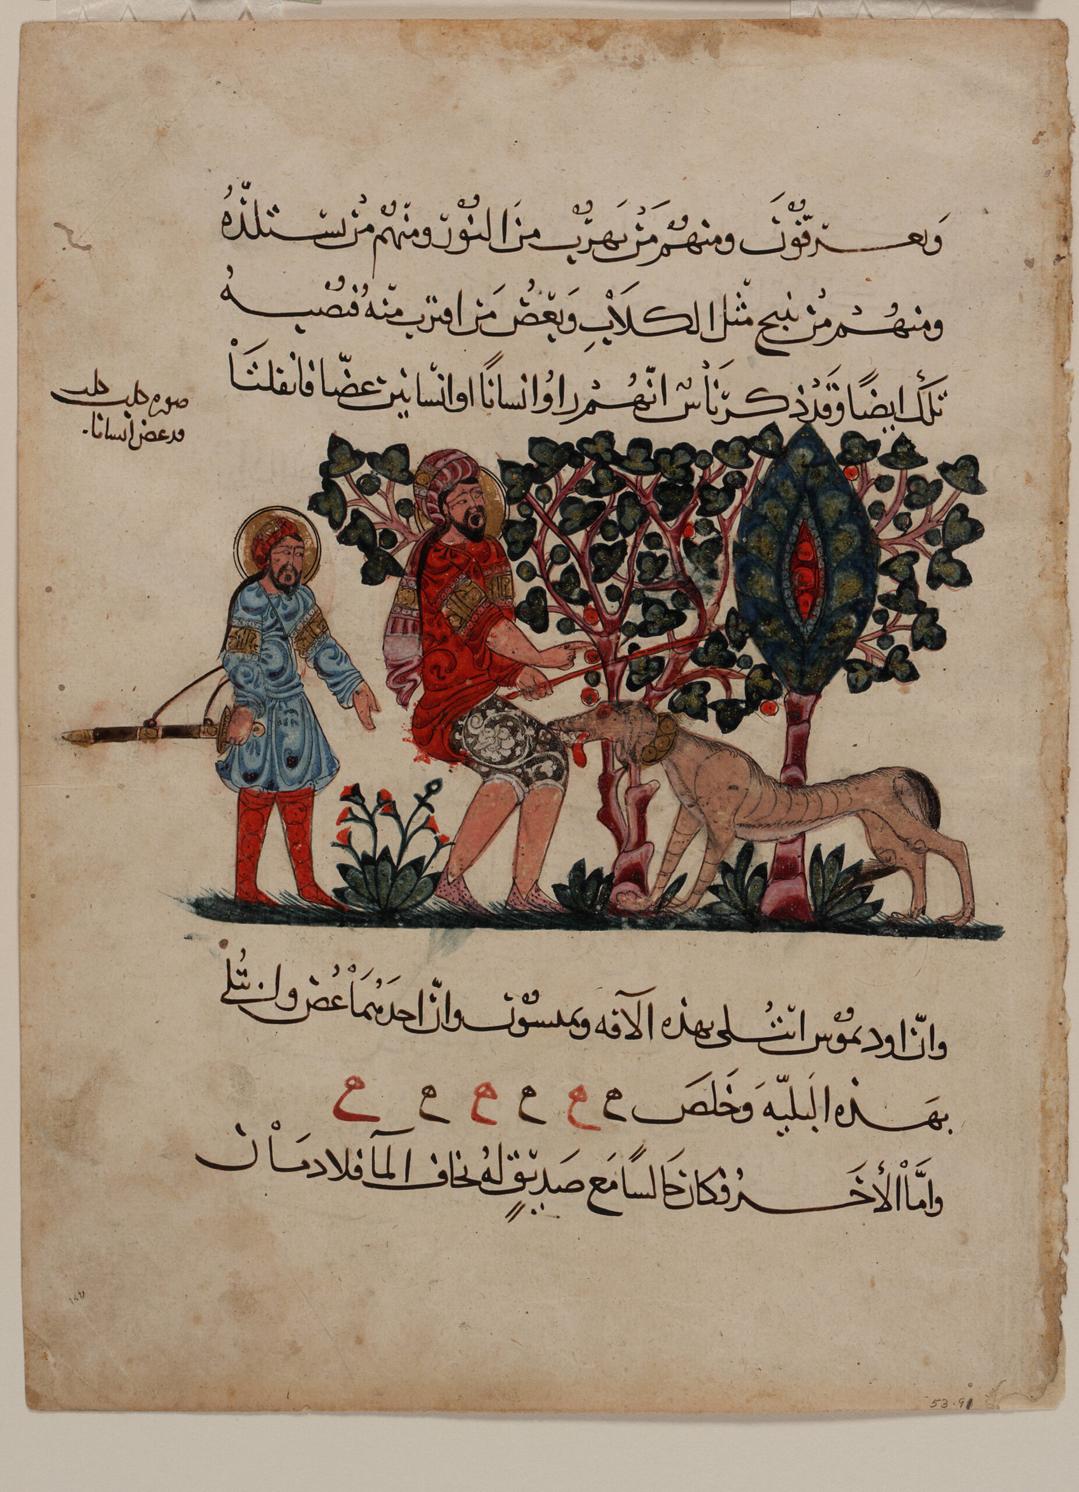 ويعرقون ومنهم من يهرب من النور ومنهم من يستلذه
ومنهم من ينبح مثل الكلاب ويعض من اقترب منه فتصيبه
تلك ايضا وقد ذكر ناس انهم راوا انسانا او انسانين عضا فانفلتا
صورة كلب كلب
قد عض انسانا
وان اوديموس ابتلى بهذه الافه وان احدهما عض وابتلي
بهذه البليه وخلص
واما الاخر فكان جالسا مع صديق له يخاف الما فلا
53.91